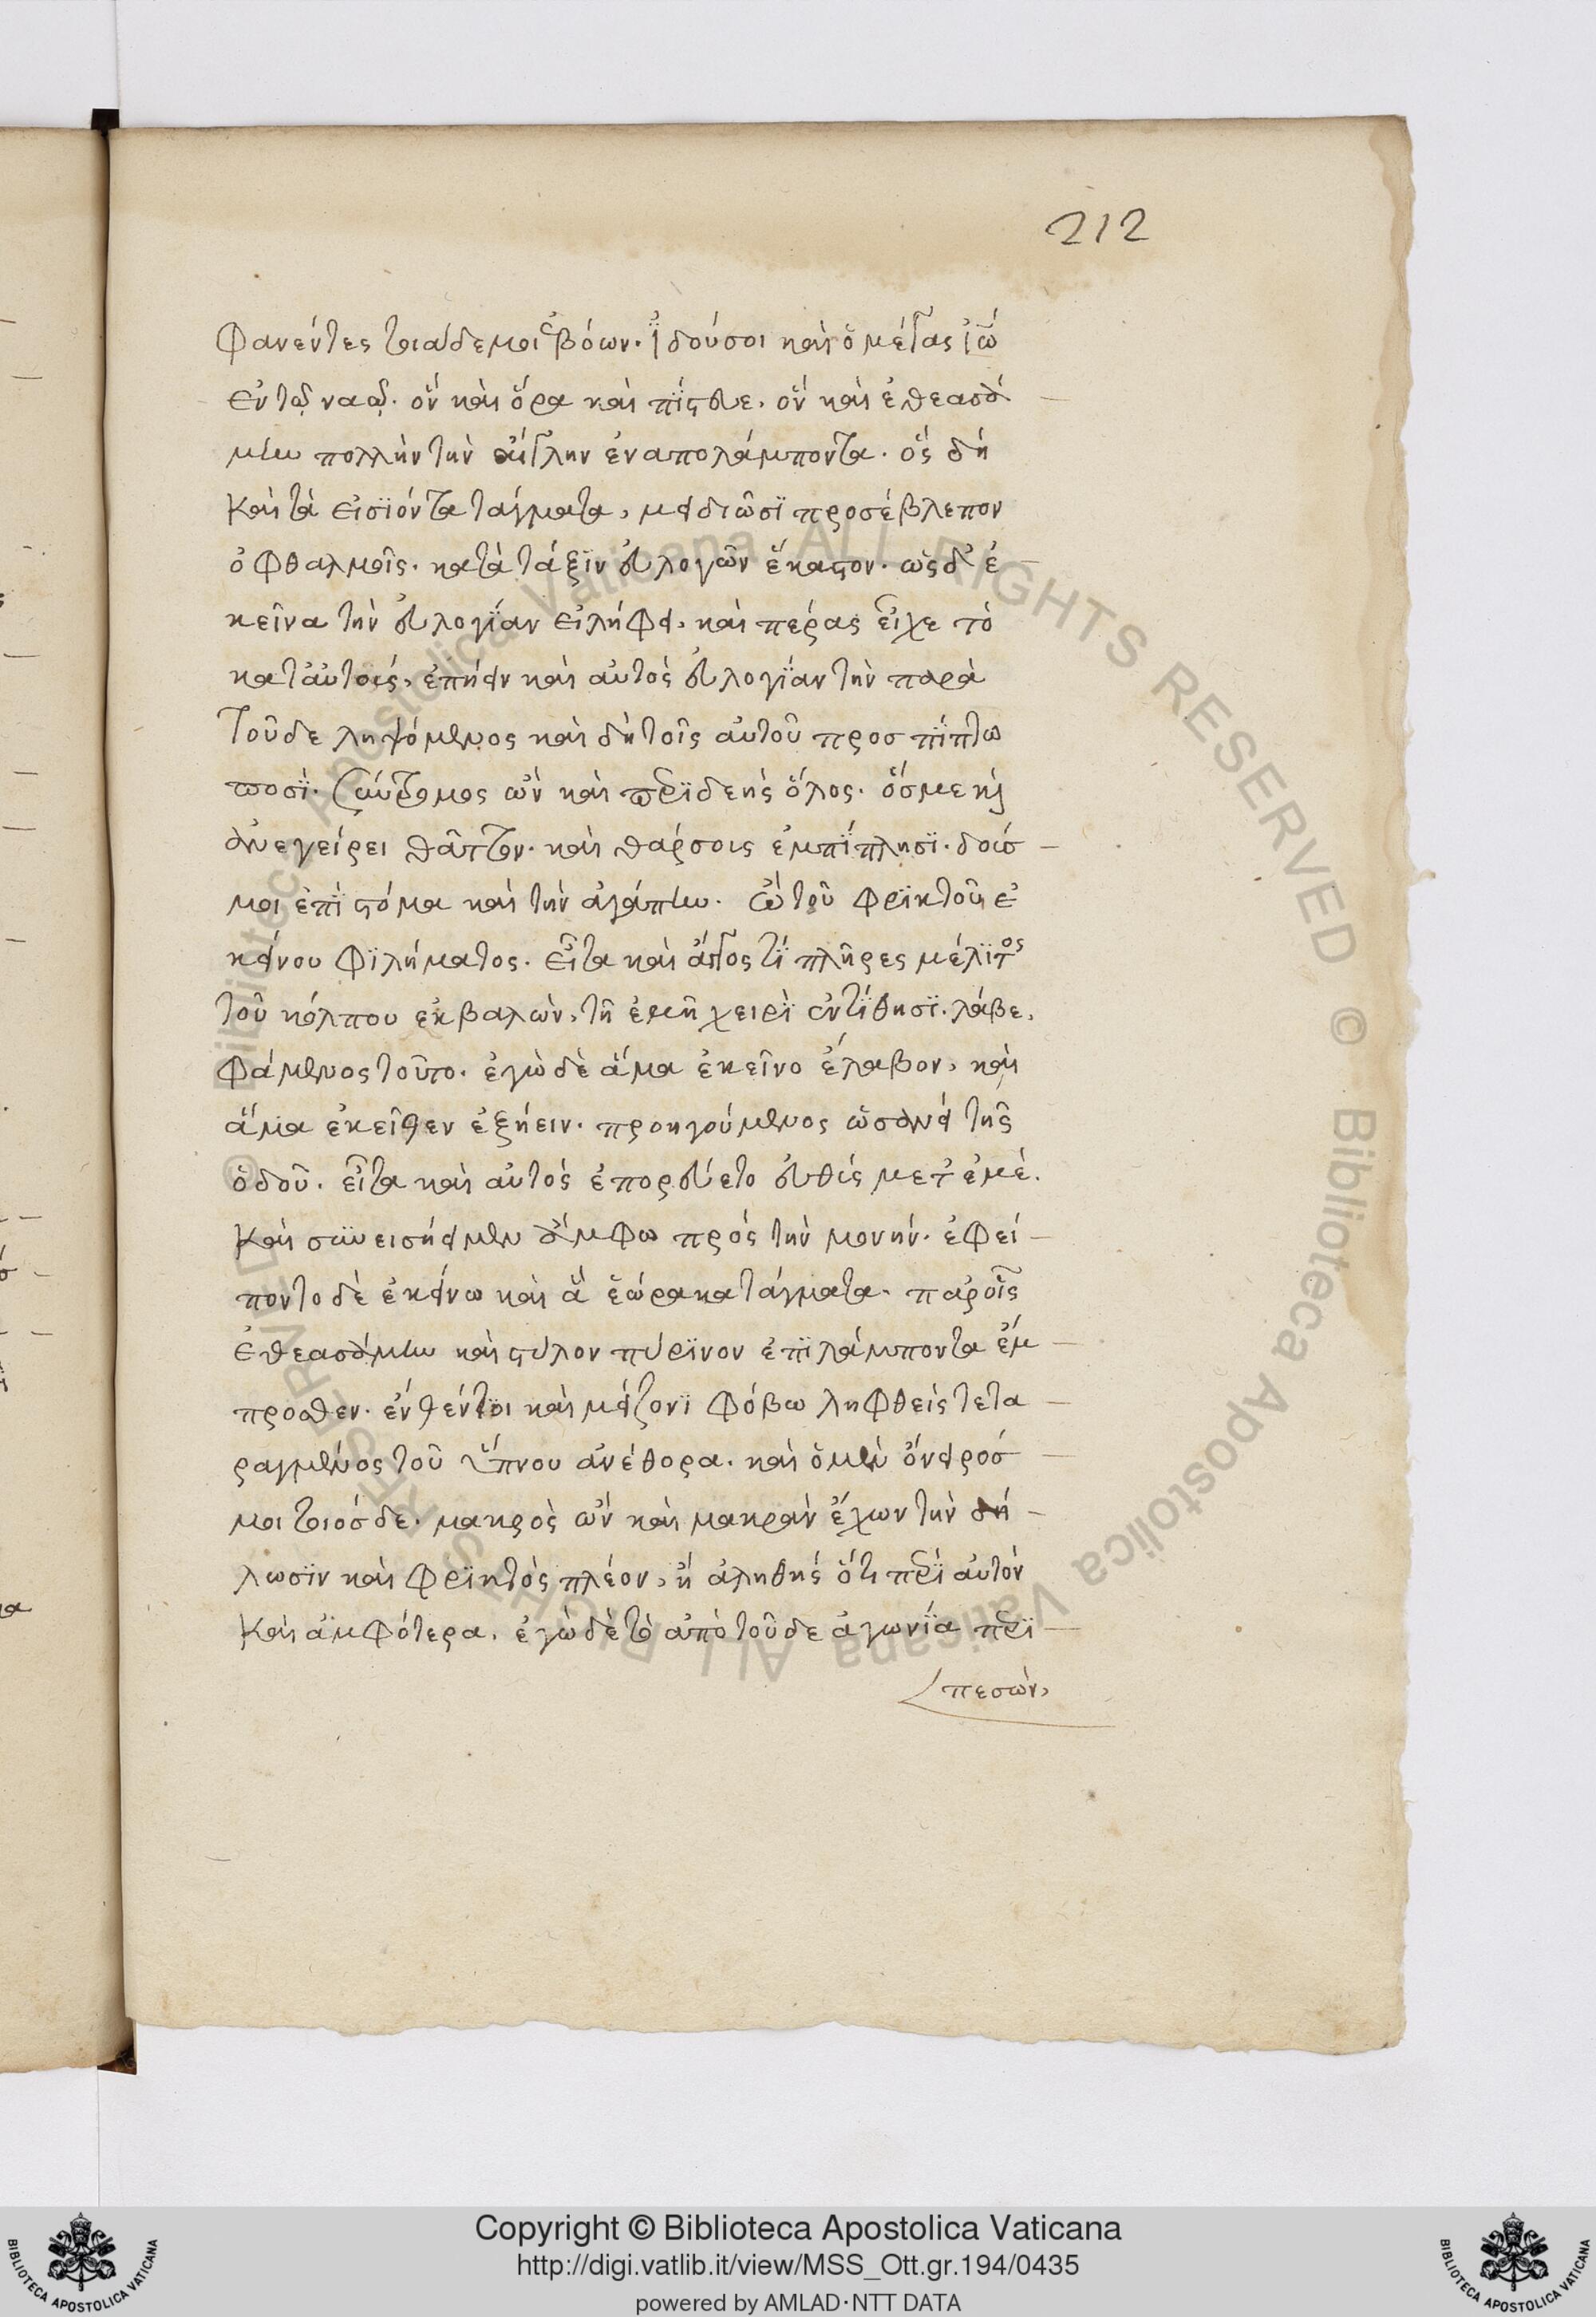 212
φανέντες τοιάδε μοι ἐβόων. ἰδού σοι καὶ ὁ μέγας ἰω
ἐν τῷ ναῷ. ὃν καὶ ὅρα καὶ πίστευε. ὃν καὶ ἐθεασά
μην πολλὴν τὴν αἴγλην ἐναπολάμποντα. ὃς δὴ
καὶ τὰ εἰσιόντα τάγματα, μειδιῶσι προσέβλεπον
ὀφθαλμοῖς. κατὰ τάξιν εὐλογῶν ἕκαστον. ὡς δ' ἐ
κεῖνα τὴν εὐλογίαν εἰλήφει, καὶ πέρας εἶχε τὸ
κατ' αὐτοὺς, ἐπῄειν καὶ αὐτὸς εὐλογίαν τὴν παρὰ
τοῦδε ληψόμενος καὶ δὴ τοῖς αὐτοῦ προσπίπτω
ποσί. σύντρομος ὢν καὶ περιδεὴς ὅλος. ὅς με καὶ
ἀνεγείρει θᾶττον. καὶ θάρσους ἐμπίπλησι. δούς
μοι ἐπὶ στόμα καὶ τὴν ἀγάπην. ὢ τοῦ φρικτοῦ ἐ
κείνου φιλήματος. εἶτα καὶ ἄγγος τί πλῆρες μέλιτος
τοῦ κόλπου ἐκβαλών, τῇ ἐμῇ χειρὶ ἐντίθησι. λάβε,
φάμενος τοῦτο. ἐγὼ δὲ ἅμα ἐκεῖνο ἔλαβον, καὶ
ἅμα ἐκεῖθεν ἐξῄειν. προηγούμενος ὡσανεὶ τῆς
ὁδοῦ. εἶτα καὶ αὐτὸς ἐπορεύετο εὐθὺς μετ' ἐμέ.
καὶ συνεισῄειμεν ἄμφω πρὸς τὴν μονήν. ἐφεί
ποντο δὲ ἐκείνω καὶ ἃ ἑώρακα τάγματα. παρ' οἷς
ἐθεασάμην καὶ στύλον πύρινον ἐπιλάμποντα ἔμ
προσθεν. ἐνθέντοι καὶ μείζονι φόβω ληφθεὶς τετα
ραγμένος τοῦ ὕπνου ἀνέθορα. καὶ ὁ μὲν ὄνειρός
μοι τοιόσδε. μακρὸς ὢν καὶ μακρὰν ἔχων τὴν δή
λωσιν καὶ φρικτὸς πλέον, ἢ ἀληθὴς ὅτι περὶ αὐτὸν
καὶ ἀμφότερα. ἐγὼ δὲ τῶ ἀπὸ τοῦδε ἀγωνία περι
πεσών,
Copyright © Biblioteca Apostolica Vaticana
http://digi.vatlib.it/view/MSS_Ott.gr.194/0435
powered by AMLAD·NTT DATA